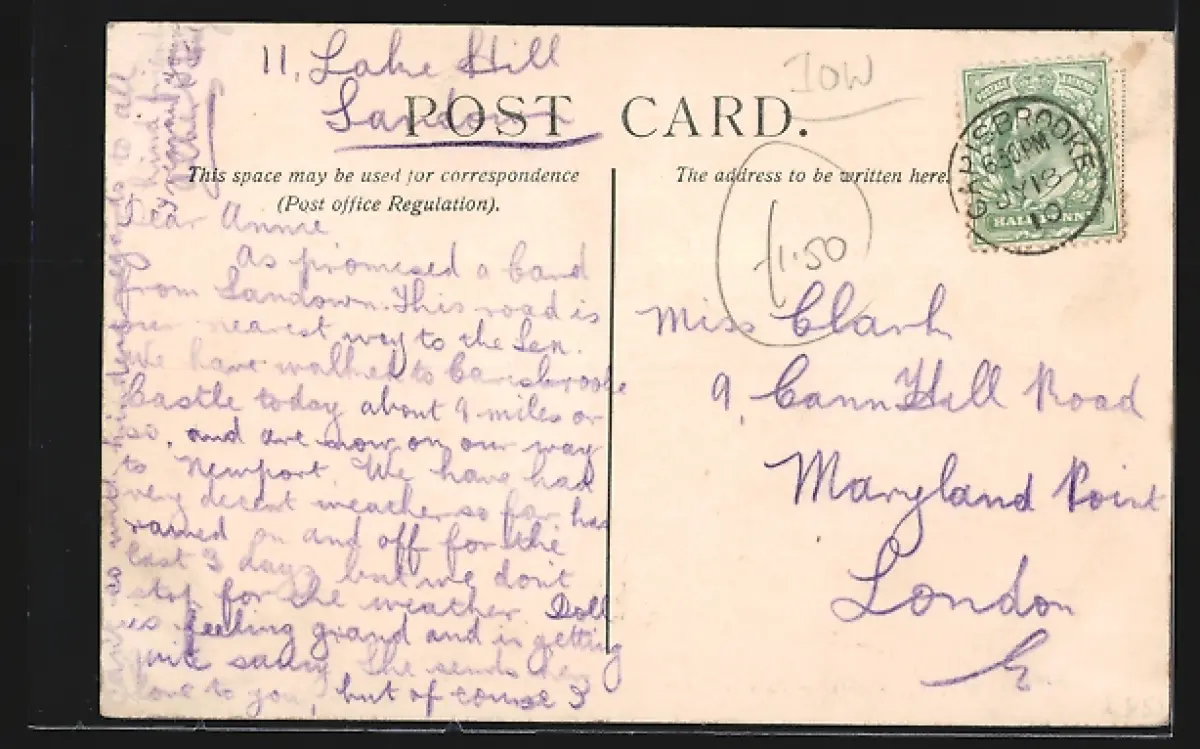 11, Lake Hill
Sandown
POST CARD.
IOW
This space may be used for correspondence
(Post office Regulation).
The address to be written here.
CARISBROOKE
6.30 PM
JY 18
10
HALFPENNY
1.50
Dear Annie
As promised a card
from Sandown. This road is
our nearest way to the Sea.
We have walked to Carisbrooke
Castle today about 9 miles or
so, and are now on our way
to Newport. We have had
very decent weather so far, has
rained on and off for the
last 3 days but we don't
stop for the weather. Doll
is feeling grand and is getting
quite saucy. She sends her
love to you, but of course I
to all
Miss Clark
9, Cann Hall Road
Maryland Point
London
E